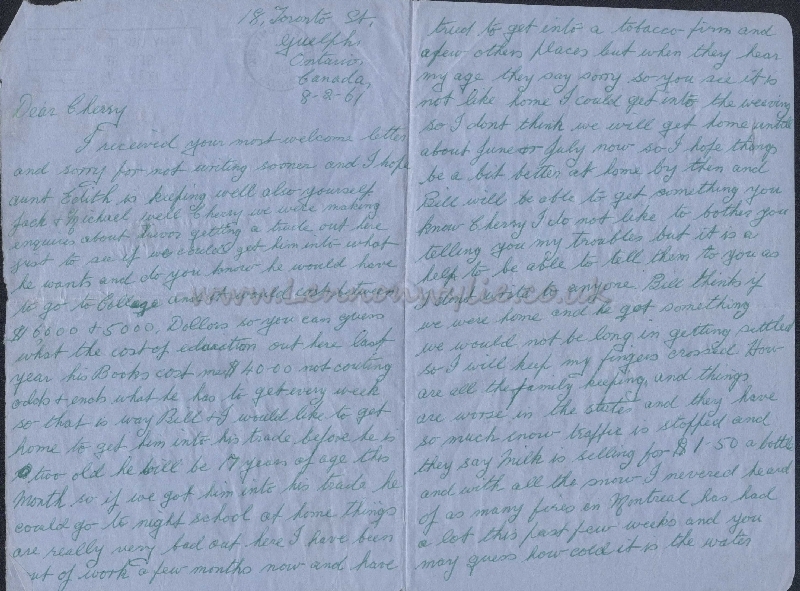 18, Toronto St,
Guelph,
Ontario,
Canada,
8-2-61
Dear Cherry
I received your most welcome letter
and sorry for not writing sooner and I hope
aunt Edith is keeping well also yourself
Jack & Michael well Cherry we were making
enquires about getting a trade out here
just to see if we could get him into what
he wants and do you know he would have
to go to College and it would cost between
$ 6000 & 5000, Dollors so you can guess
what the cost of education out here last
year his Books cost me $ 40-00 not couting
odds & ends what he has to get every week
so that is way Bill & I would like to get
home to get him into his trade before he is
two old he will be 17 years of age this
Month so if we got him into his trade he
could go to night school at home things
are really very bad out here I have been
out of work a few months now and have
tried to get into a tobacco firm and
a few others places but when they hear
my age they say sorry so you see it is
not like home I could get into the weaving
so I dont think we will get home untill
about June or July now so I hope things
be a bit better at home by then and
Bill will be able to get something you
know Cherry I do not like to bother you
telling you my troubles but it is a
help to be able to tell them to you as
I dont write to anyone. Bill thinks if
we were home and he got something
we would not be long in getting settled
so I will keep my fingers crossed. How
are all the family keeping, and things
are worse in the states and they have
so much snow traffic is stopped and
they say Milk is selling for $ 1-50 a bottle
and with all the snow I nevered heard
of as many fires en Montreal has had
a lot this past few weeks and you
may guess how cold it is the water